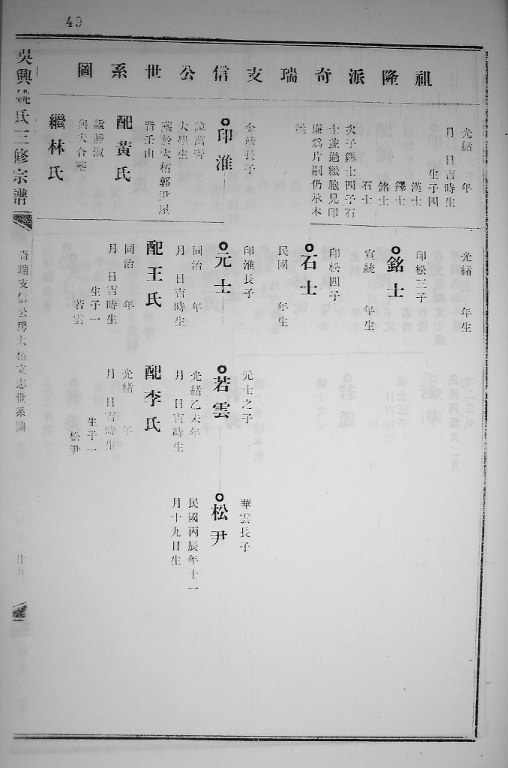 49
祖隆派奇瑞支信公世系圖
光緒 年
月 日吉時生
生子四
漢士
鐸士
銘士
石士
次子鐸士四子石
士並過繼胞兄印
廉為
嗣仍承本
金壽長子
印淮
大學生
配黃氏
繼林氏
光緒 年
年生
印松三子
銘士
宣統 年生
印松四子
石士
民國 年生
印淮長子
元士
同治 年
月 日吉時生
配王氏
同治 年
月 日吉時生
生子一
若雲
元士之子
若雲
光緒乙未年
月 日吉時生
配李氏
光緒 年
月 日吉時生
生子一
松尹
雲長子
松尹
民國丙辰年十一
月十九日生
吳興姚氏三修宗譜
奇瑞支信公房大
立志世系圖